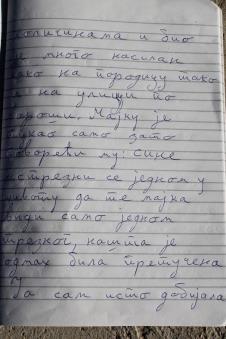 количинама и био
и много насилан
како на породицу тако
и на улици по
вароши. Мајку је
тукао само зато
говорећи му: сине
истрезни се једном у
животу да те мајка
види само једном
трезног, нашта је
одмах била претучена
Ја сам исто добијала